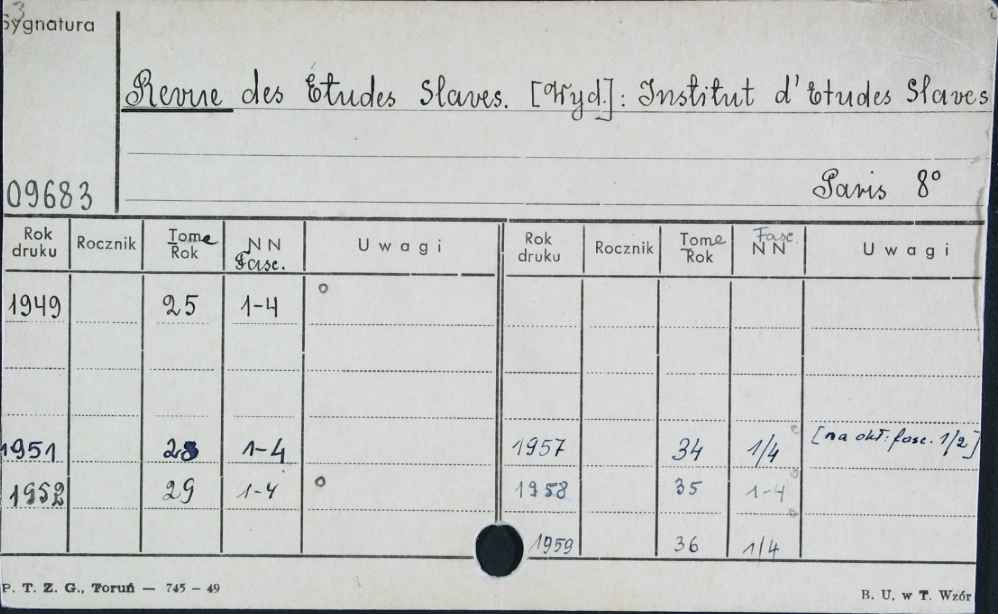 3
Sygnatura
Revue des Etudes Slaves. [Wyd.]: Institut d'Etudes Slaves
Paris 8°
09683
Rok druku Rocznik Tome Rok NN Fasc. Uwagi Rok druku Rocznik Tome Rok Fasc. NN Uwagi
1949 25 1-4
1951 28 1-4 1957 34 1/4 [na okł: fasc. 1/2]
1952 29 1-4 1958 35 1-4
1959 36 1/4
P. T. Z. G., Toruń — 745 – 49 B. U. w T. Wzór